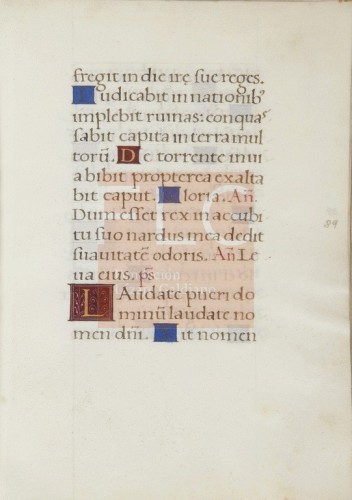 fregit in die irę suę reges.
Iudicabit in nationibꝰ
implebit ruinas: conquas
sabit capita in terra mul
torū. De torrente in ui
a bibit propterea exalta
bit caput. Gloria. Añ.
Dum esset rex in accubi
tu suo nardus mea dedit
suauitatē odoris. Añ. Le
ua eius. ps̄
LAudate pueri do
minū laudate no
men dñi. Sit nomen
89